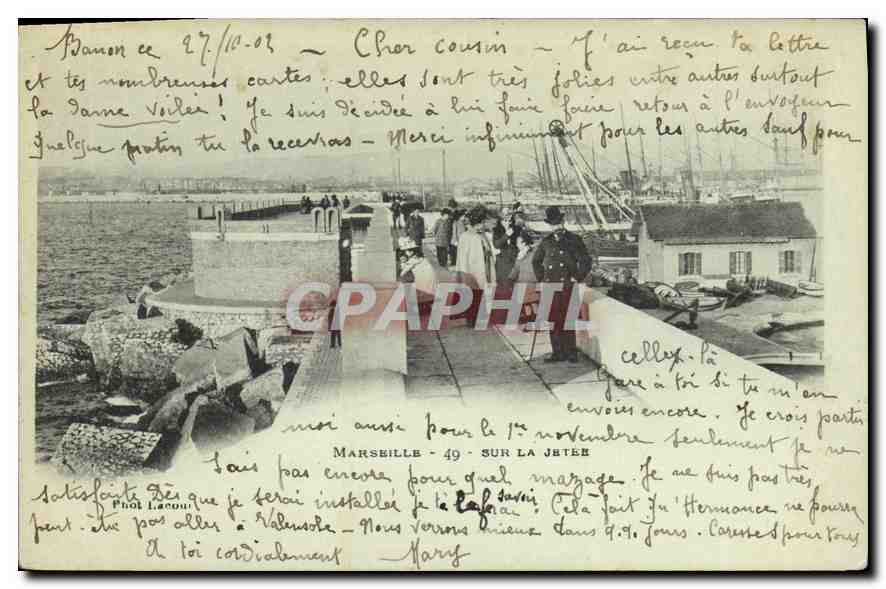 Banon ce 27/10-02 - Cher cousin - J'ai reçu ta lettre
et tes nombreuses cartes; elles sont très jolies entre autres surtout
la dame voilée! Je suis décidée à lui faire faire retour à l'envoyeur
quelque matin tu la recevras - Merci infiniment pour les autres sauf pour
celles-là
Gare à toi si tu m'en
envoies encore. Je crois partir
moi aussi pour le 1er novembre seulement je ne
MARSEILLE - 49 - SUR LA JETÉE
sais pas encore pour quel Je ne suis pas très
satisfaite Dès que je serai installée je te le ferai savoir. Celà fait qu'Hermance ne pourra
Phot Lacour
peut-être pas aller à Valensole - Nous verrons mieux dans q.q. jours. Caresses pour tous
A toi cordialement Mary
CPAPHIL